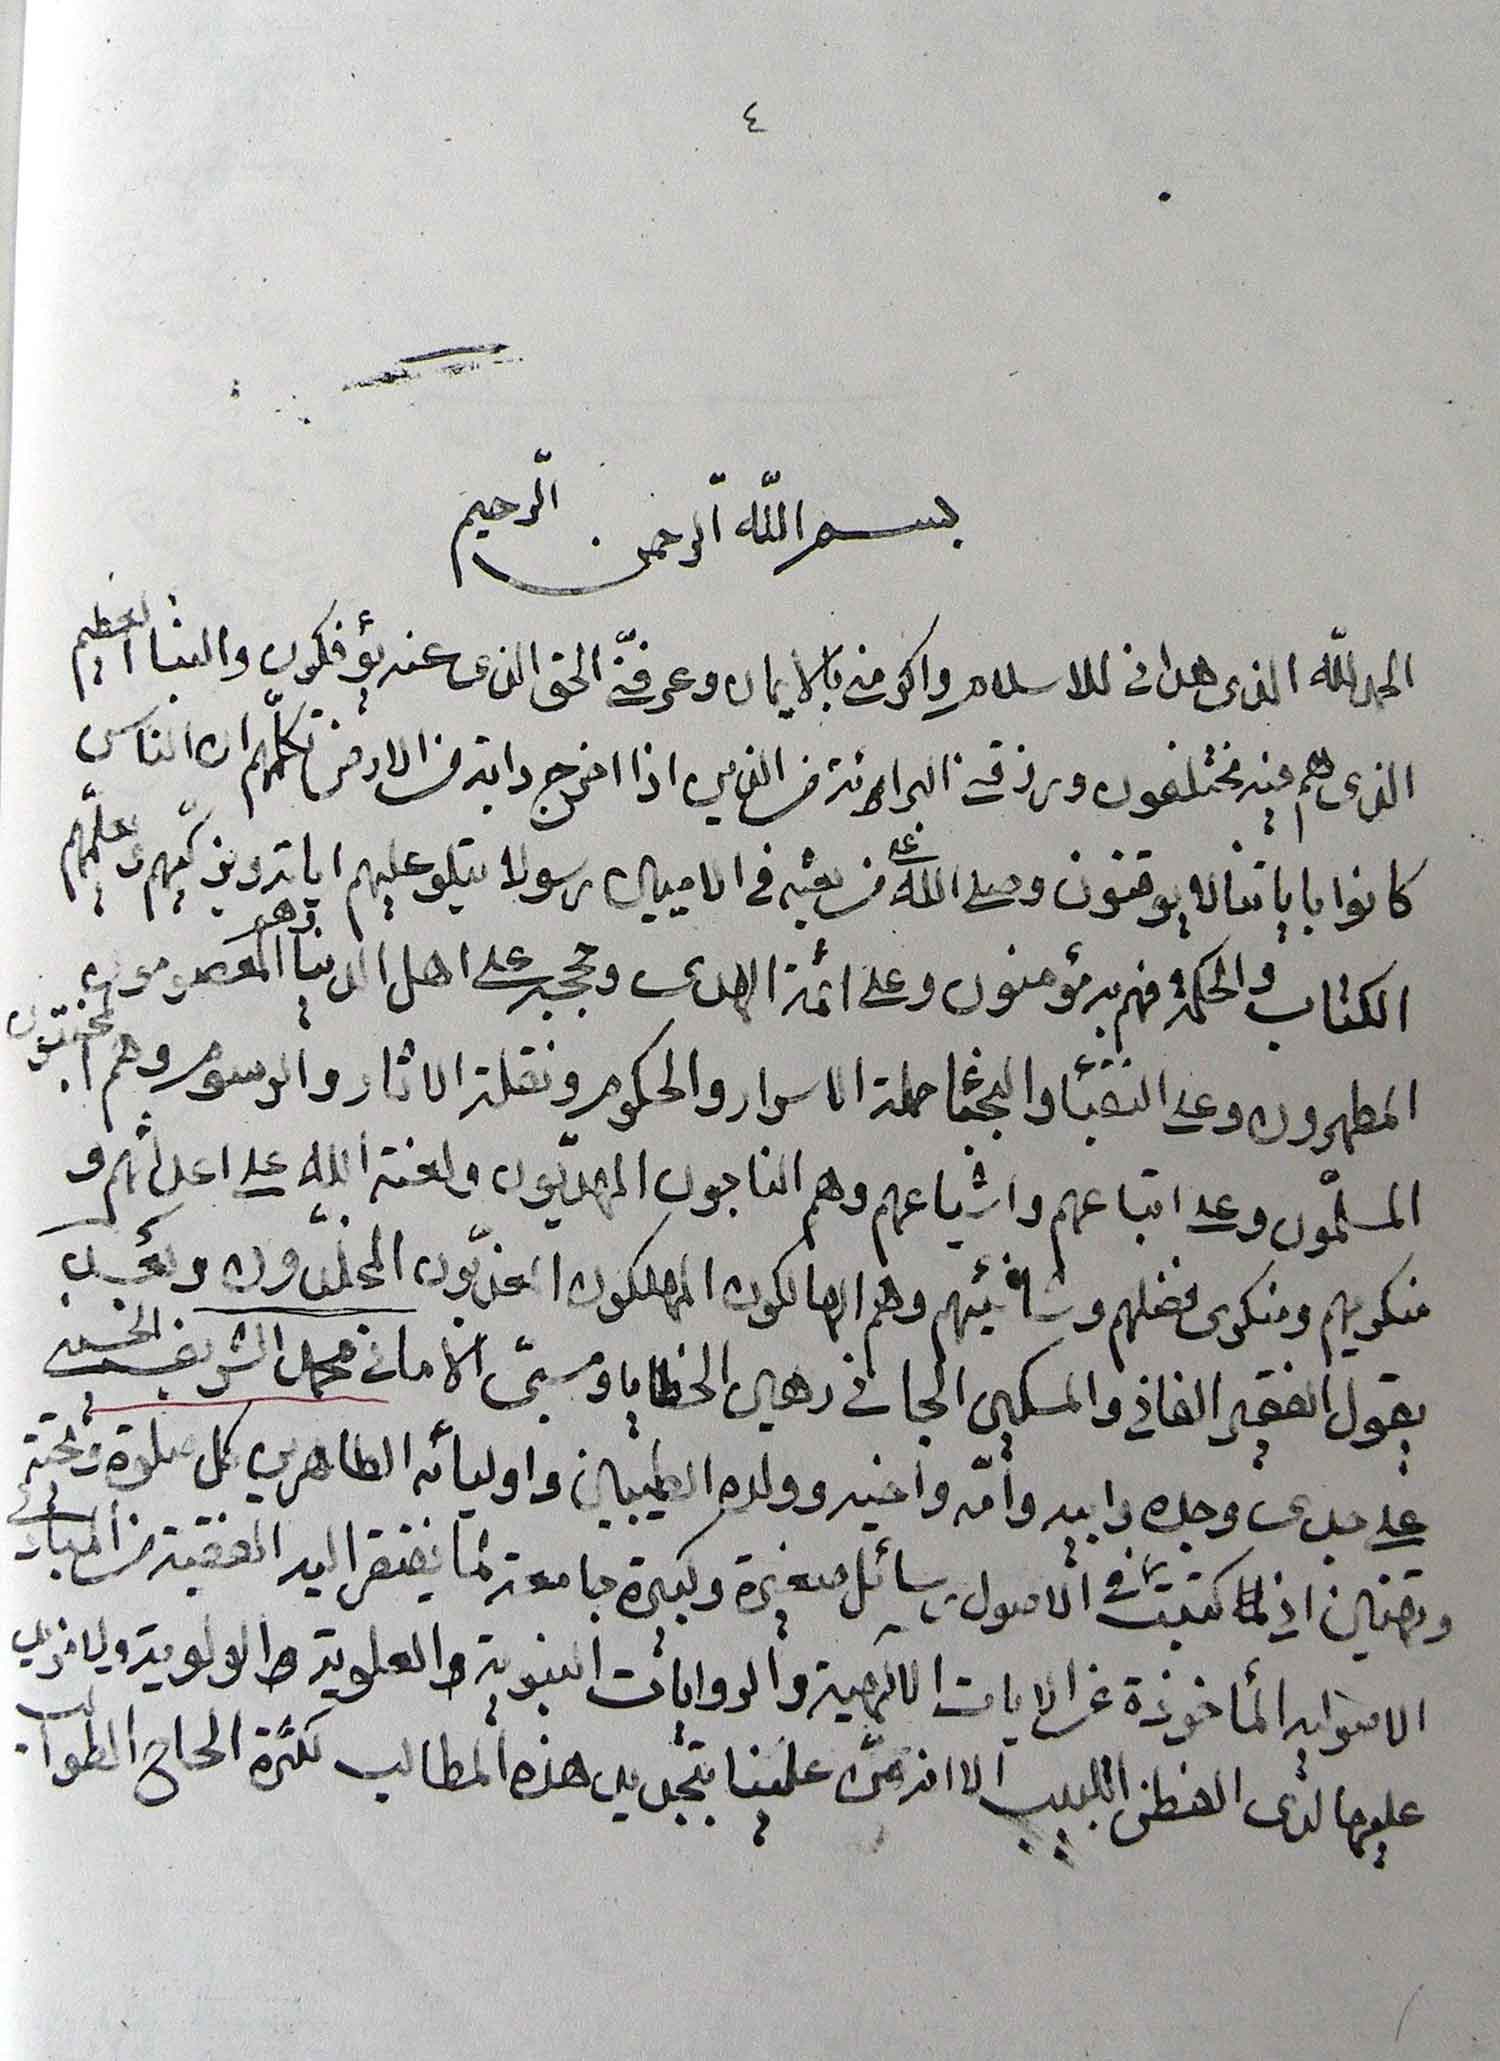 ٤
بسم الله الرحمن الرحيم
الحمد لله الذى هدانى للاسلام واكرمنى بالايمان وعرفنى الحق الذى عنه يؤفكون والنبأ العظيم
الذى هم فيه مختلفون ورزقنى البراءة من الذين اذا اخرج دابة من الارض تكلمهم ان الناس
كانوا باياتنا لا يوقنون وصلى الله على من بعثه فى الاميين رسولا يتلو عليهم اياته ويزكيهم ويعلمهم
الكتاب والحكمة فهم به مؤمنون وعلى ائمة الهدى وحججه على اهل الدنيا وهم المعصومون
المطهرون وعلى النقبأ والنجبأ حملة الاسرار والحكوم ونقلة الاثار والرسوم وهم المخبتون
المسلمون وعلى اتباعهم واشياعهم وهم الناجون المهديون ولعنة الله على اعدائهم و
منكريهم ومنكرى فضلهم وشانئيهم وهم الهالكون المهلكون المعذبون المخلدون وبعد
يقول الفقير الفانى والمسكين الجانى رهين الخطايا و الامانى محمد الشريف الحسنى
على جدى وجده وابيه وأمه وأخيه وولده الطيبين واوليائه الطاهرين كل صلوة وتحية
انى لما كتبت فى الاصول رسائل صغيرة وكبيرة جامعة لما يفتقر اليه الفقيه من المبادى
الاصولية المأخوذة عن الايات الالهية والروايات النبوية والعلوية والولوية ولا مزيد
عليها لدى الفطن اللبيب الا انه منّ علينا بتجديد هذه المطالب لكثرة الحاح الطلاب